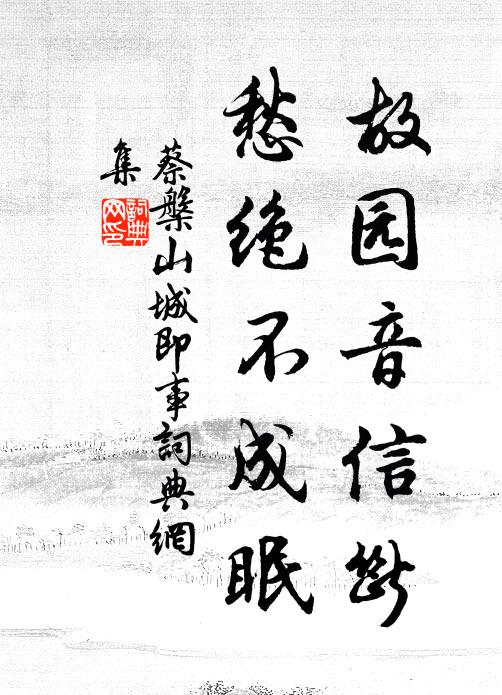 故园音信断
愁绝不成眠
蔡槃山城即事詞典網
集
詞典
网印